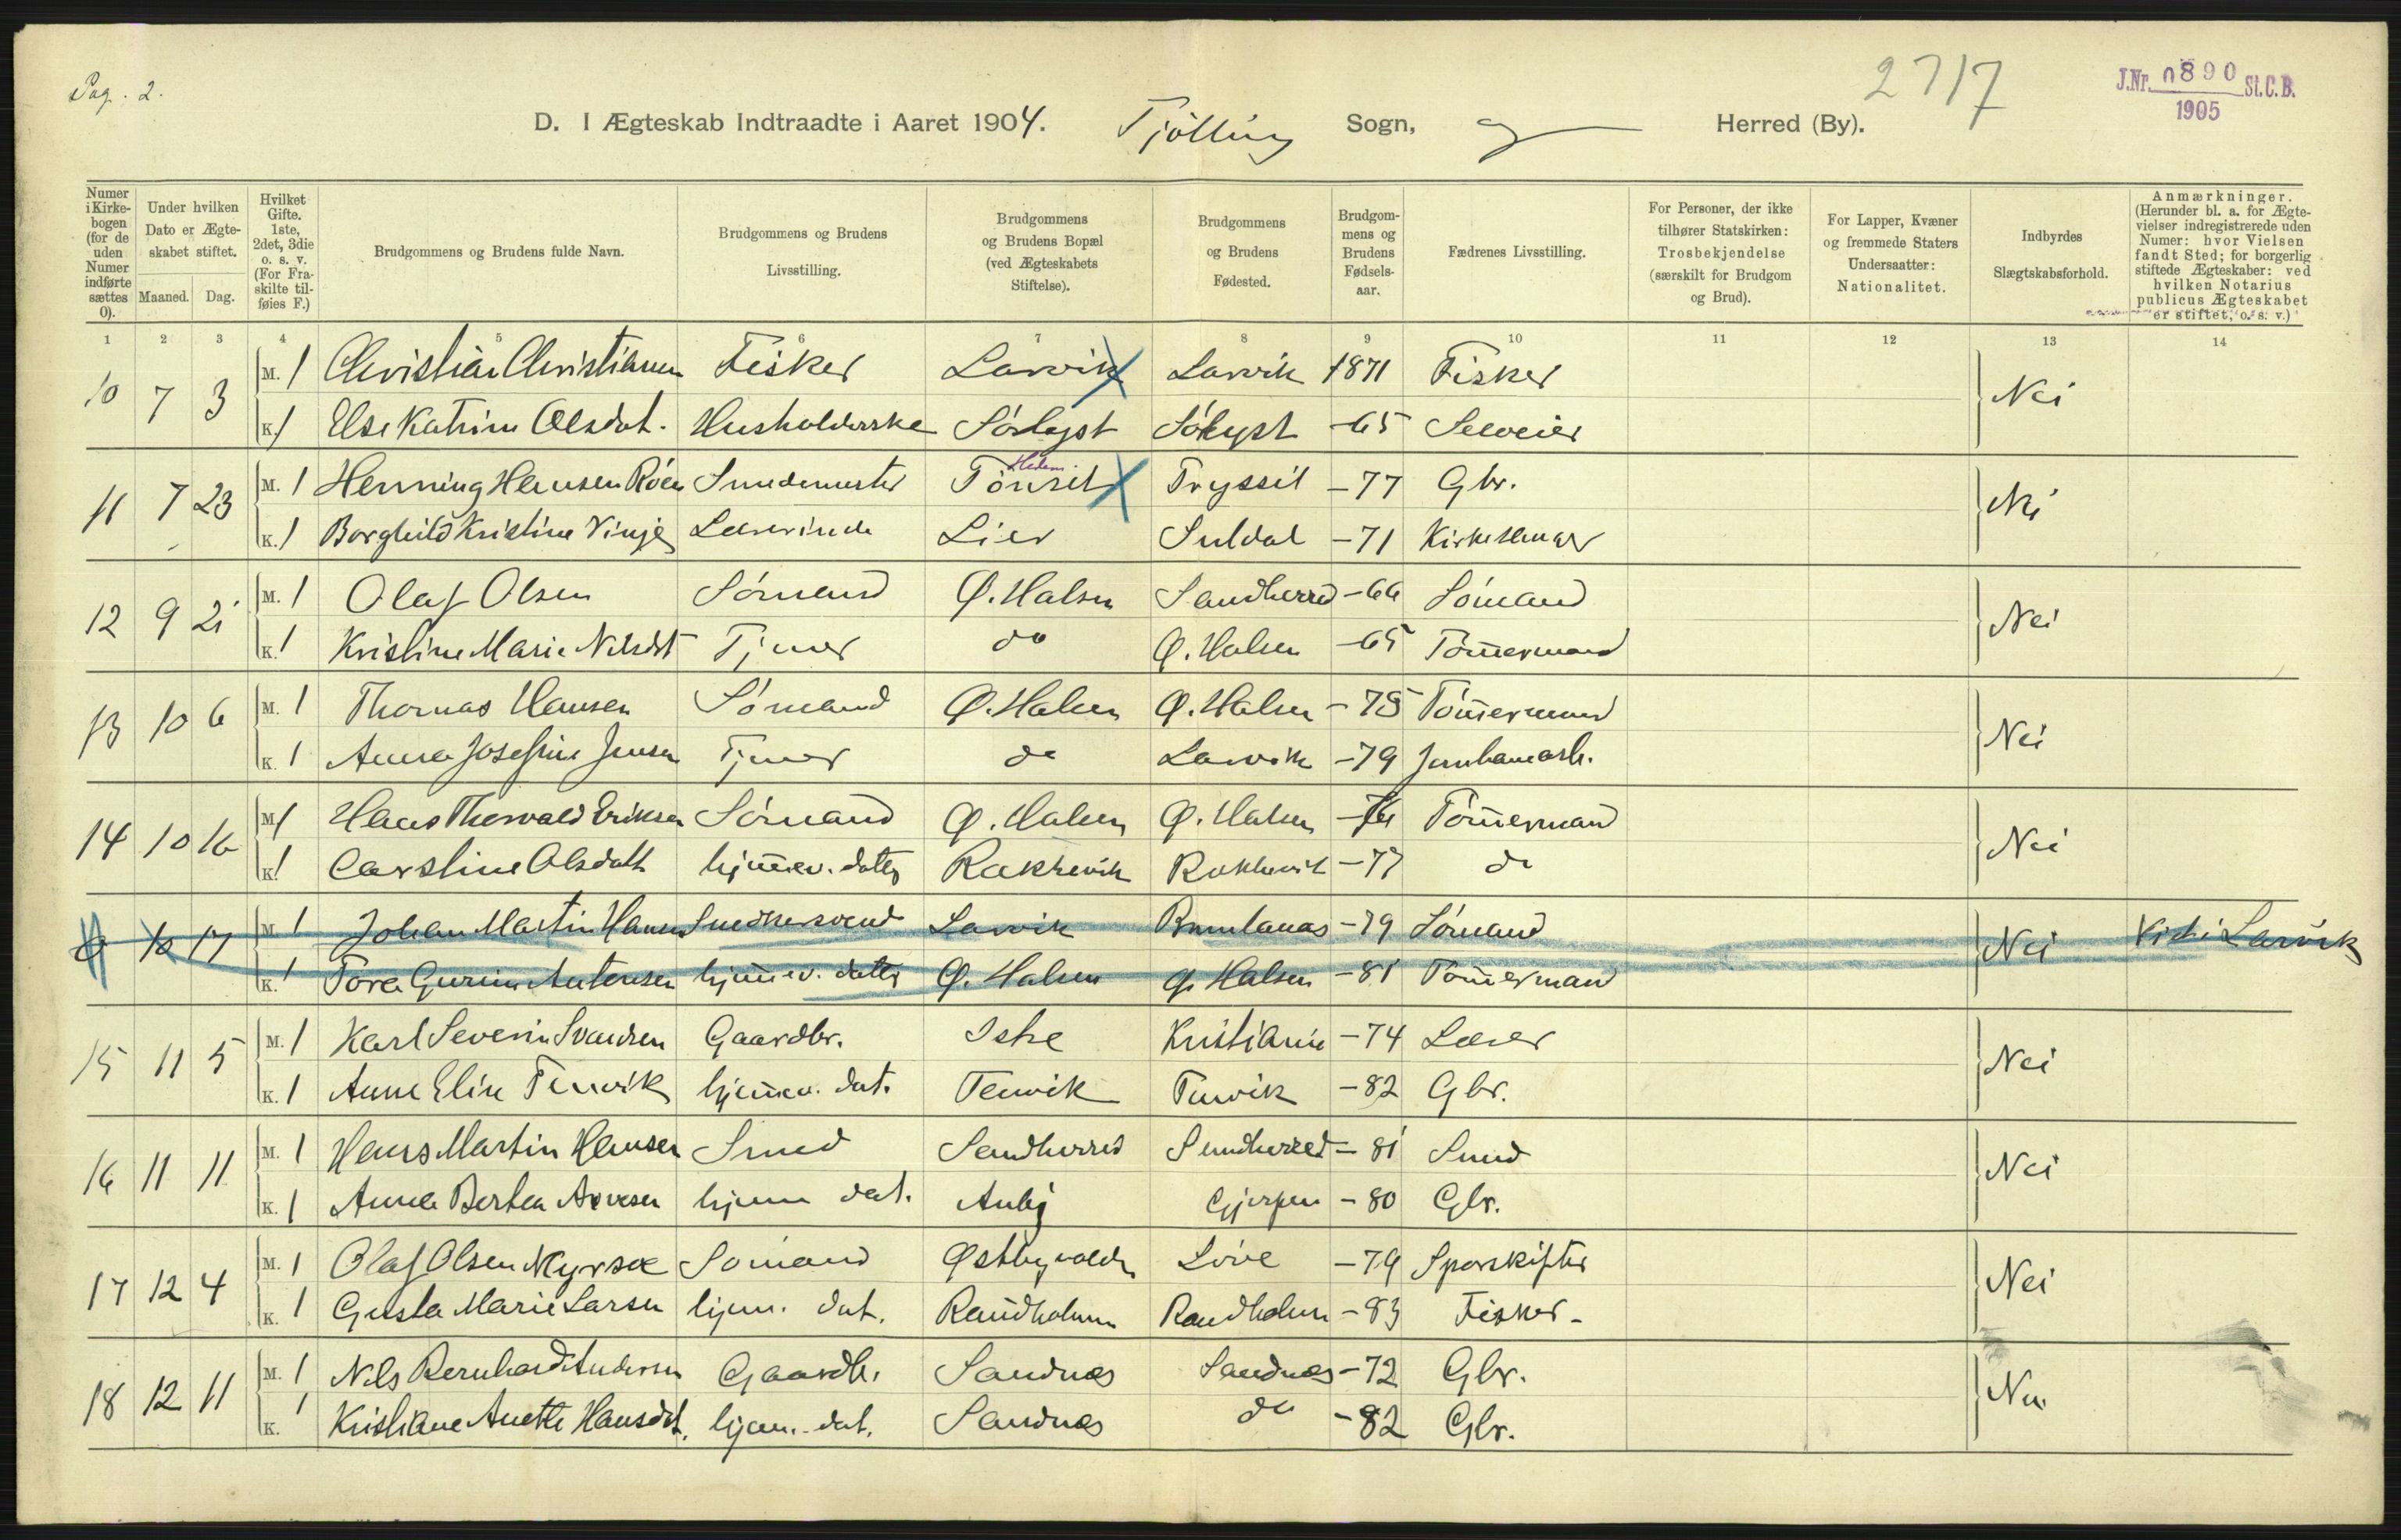 Pag. 2.
2717
J.Nr. 0890 St.C.B.
1905
D. I Ægteskab Indtraadte i Aaret 1904. Tjölling Sogn, Herred (By).
Numer i Kirkebogen (for de uden Numer indførte sættes 0).
Under hvilken Dato er Ægteskabet stiftet.
Maaned. Dag.
Hvilket Gifte. 1ste, 2det, 3die o. s. v. (For Fraskilte tilføies F.)
Brudgommens og Brudens fulde Navn.
Brudgommens og Brudens Livsstilling.
Brudgommens og Brudens Bopæl (ved Ægteskabets Stiftelse).
Brudgommens og Brudens Fødested.
Brudgommens og Brudens Fødselsaar.
Fædrenes Livsstilling.
For Personer, der ikke tilhører Statskirken: Trosbekjendelse (særskilt for Brudgom og Brud).
For Lapper, Kvæner og fremmede Staters Undersaatter: Nationalitet.
Indbyrdes Slægtskabsforhold.
Anmærkninger. (Herunder bl. a. for Ægtevielser indregistrerede uden Numer: hvor Vielsen fandt Sted; for borgerlig stiftede Ægteskaber: ved hvilken Notarius publicus Ægteskabet er stiftet, o. s. v.)
1 2 3 4 5 6 7 8 9 10 11 12 13 14
10 7 3 M. 1 Christian Christiansen Fisker Larvik Larvik 1871 Fisker Nei
K. 1 Else Katrine Olsdat. Husholderske Sórlyst Sólyst -65 Selveier
11 7 23 M. 1 Henning Hansen Röen Smedemester Tönset Hedem. Tryssil -77 Gbr. Nei
K. 1 Borghild Kristine Vinje Lærerinde Lier Suldal -71 Kirkesanger
12 9 21 M. 1 Olaf Olsen Sómand Ø. Halsen Sandherred -66 Sómand Nei
K. 1 Kristine Marie Nilsdt Tjener do Ø. Halsen -65 Tömmermand
13 10 6 M. 1 Thomas Hansen Sómand Ø. Halsen Ø. Halsen -75 Tömmermand Nei
K. 1 Anna Josefine Jensen Tjener do Larvik -79 Jernbanearb.
14 10 16 M. 1 Hans Thorvald Eriksen Sómand Ø. Halsen Ø. Halsen Tömmermand Nei
K. 1 Carstine Olsdatt hjemmev. datter Rakkevik Rakkevik -77 do
0 10 17 M. 1 Johan Martin Hansen Snedkersvend Larvik Brunlanæs -79 Sómand Nei Viet i Larvik
K. 1 Tora Gurine Antonsen hjemmev. datter Ø. Halsen Ø. Halsen -81 Tömmermand
15 11 5 M. 1 Karl Severin Svendsen Gaardbr. Istre Kristiania -74 Lærer Nei
K. 1 Anne Eline Tenvik hjemmev. dat. Tenvik Tenvik -82 Gbr.
16 11 11 M. 1 Hans Martin Hansen Smed Sandherred Sandherred -81 Smed Nei
K. 1 Anna Bertea Arvesen hjem dat. Auby Gjerpen -80 Gbr.
17 12 4 M. 1 Olaf Olsen Myrsæ Sómand Östbyvolden Löve -79 Sporskifter Nei
K. 1 Gusta Marie Larsen hjem. dat. Raudholmen Raudholmen -83 Fisker
18 12 11 M. 1 Nils Bernhard Andersen Gaardb. Sandnæs Sandnæs -72 Gbr. Nei
K. 1 Kristiane Anette Hansdt. hjem. dat. Sandnæs do -82 Gbr.